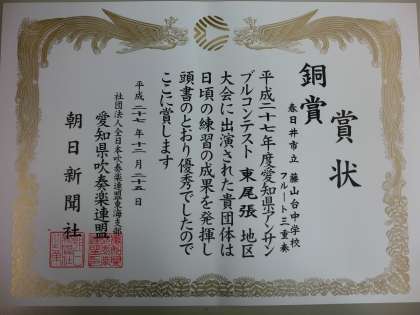 賞状
銅賞
春日井市立 藤山台中学校
フルート三重奏
平成二十七年度愛知県アンサン
ブルコンテスト 東尾張 地区
大会に出演された貴団体は
日頃の練習の成果を発揮し
頭書のとおり優秀でしたので
ここに賞します
平成二十七年十二月二十五日
社団法人全日本吹奏楽連盟東海支部
愛知県吹奏楽連盟
朝日新聞社